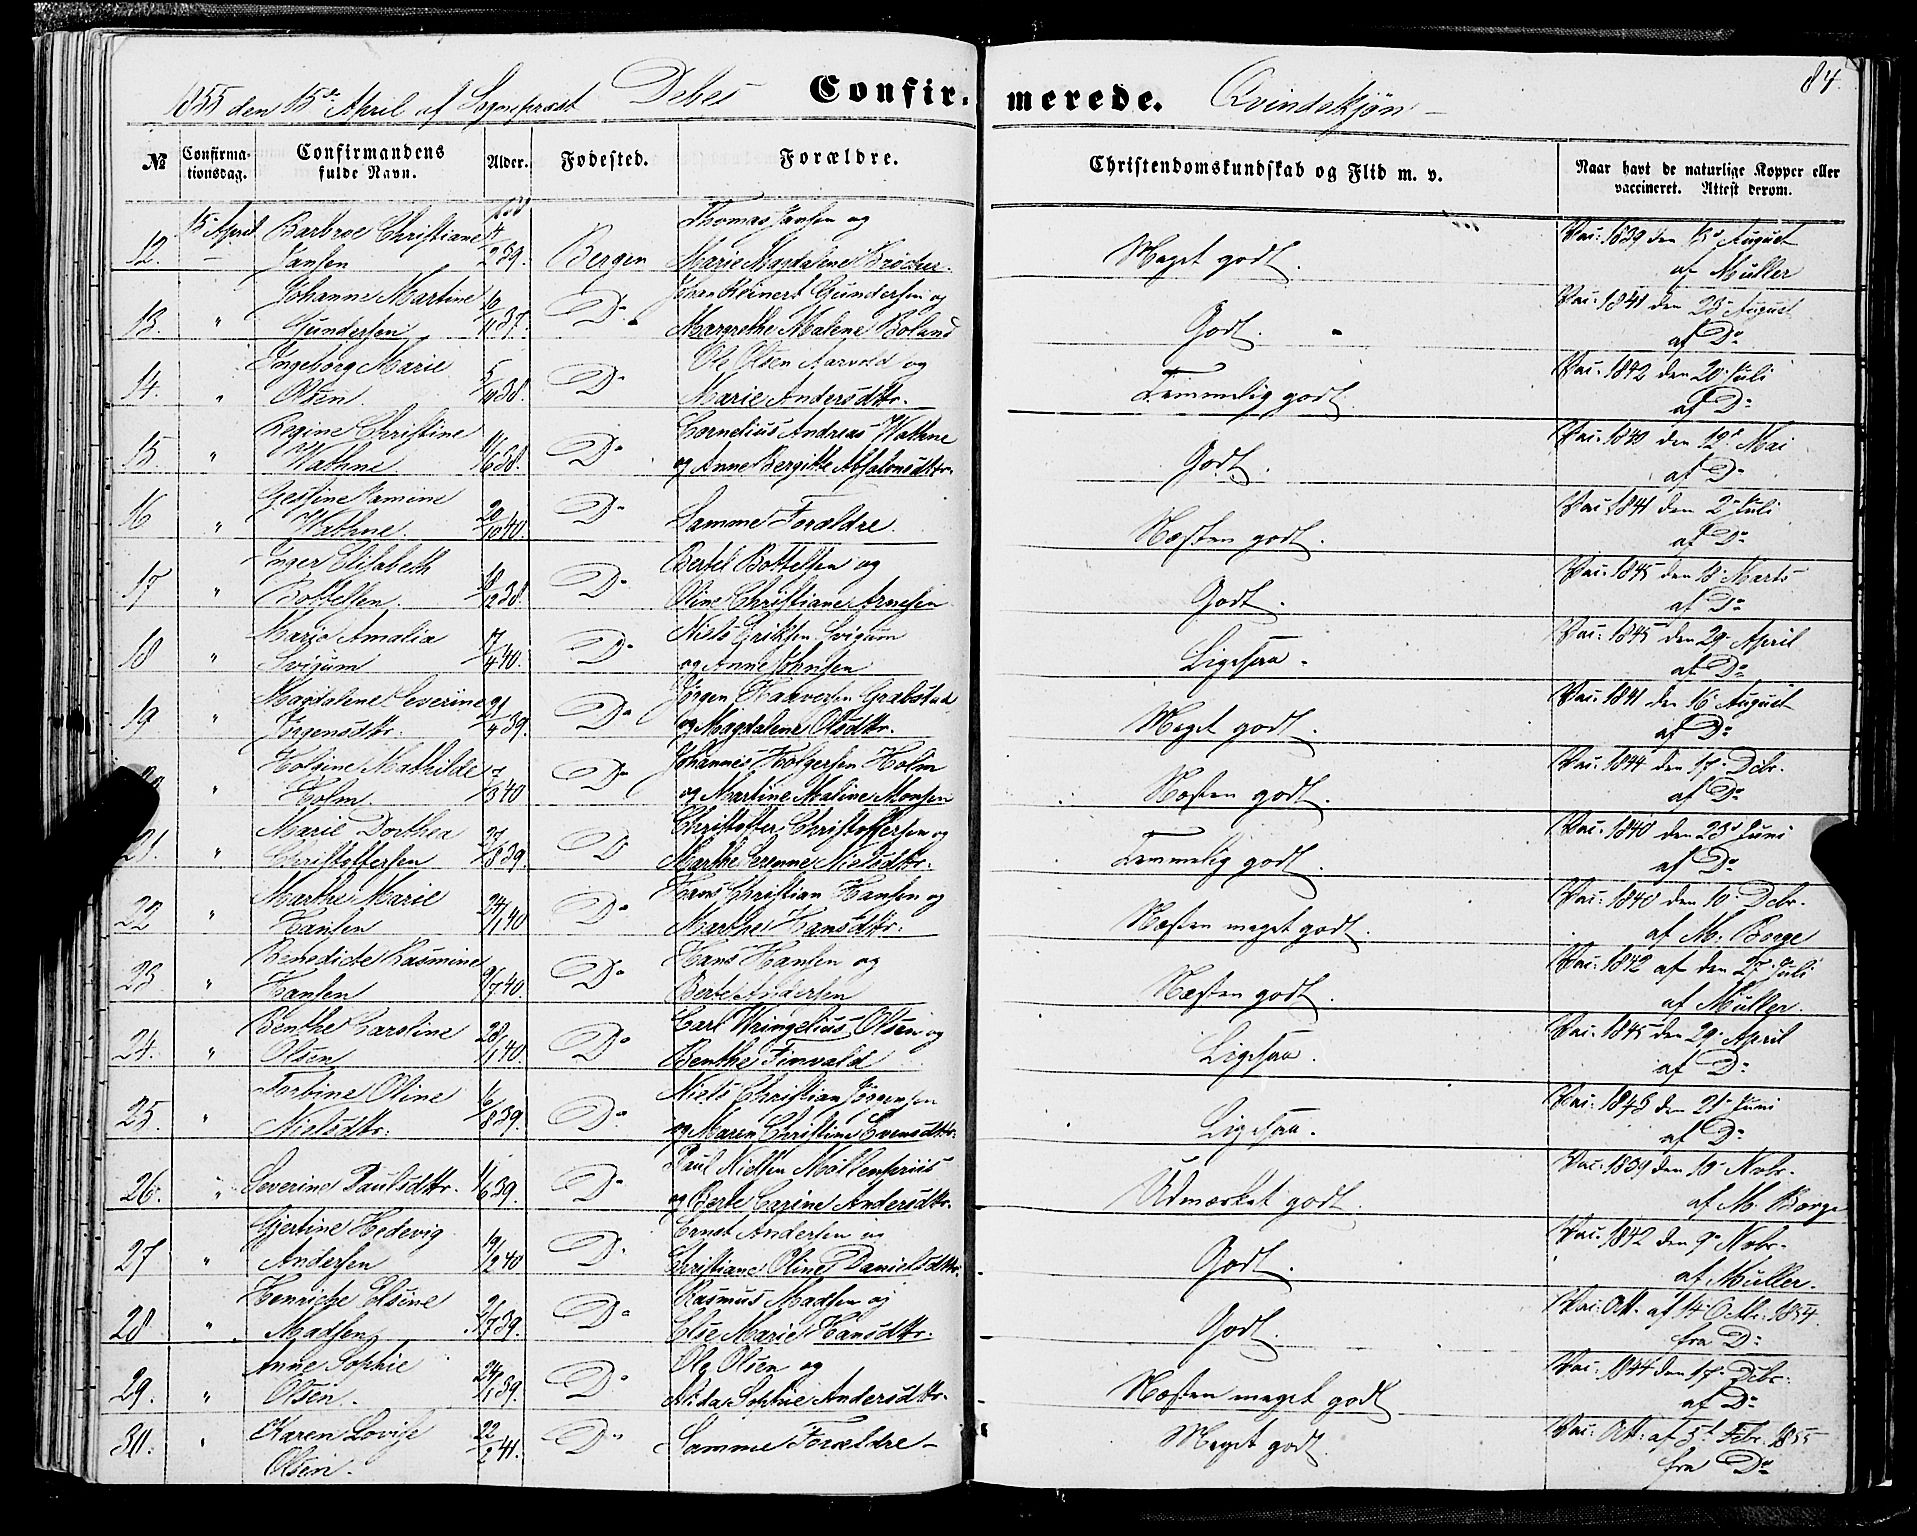 84.
1855 den 15de April af Sognepræst Debes Confirmerede. Qvindekjøn
№ Confirmationsdag. Confirmandens fulde Navn. Alder. Fødested. Forældre. Christendomskundskab og Flid m. v. Naar havt de naturlige Kopper eller vaccineret. Attest derom.
15 April Barbroe Christiane Thomas Jansen og Vac: 1839 den 13 August
12. Jansen 2 39. Bergen Marie Magdalene Meget godt. af Müller
Johanne Martine 10 Johan Reinert Gundersen og Vac: 1841 den 28 August
13. " Gundersen 11 37. Do Margrethe Malene Boland Godt. af Do
Ingeborg Marie 5 Ole Olsen Aarvold og Vac: 1842 den 20 Juli
14. " Olsen 10 38. Do Marie Andersdtr. Temmelig godt. af Do
Regine Christine 11 Cornelius Andreas Wathne Vac: 1840 den 12 Mai
15. " Wathne 6 38. Do og Anne Bergitte Absalonsdtr. Godt. af Do
Gesine Jamine 20 Vac: 1841 den 2 Juli
16 " Wathne. 10 40. Do Samme Forældre. Næsten godt. af Do
Inger Elisabeth 18 Bertel Bottelsen og Vac: 1845 den 18 Marts
17 " Bottelsen. 2 38. Do Oline Christiane Arnesen Godt. af Do
Marie Amalia 17 Niels Eriksen Svigum Vac: 1845 den 29 April
18 " Svigum 4 40. Do og Anne Johnsen Ligesaa. af Do
Magdalene Severine 21 Jørgen Haaversen Grabstad Vac: 1841 den 16 August
19 " Jørgensdtr. 4 39. Do og Magdalene Olsdtr. Meget godt. af Do
Holgine Mathilde 7 Johannes Holgersen Holm Vac: 1844 den 17 Dcbr.
" Holm. 3 40 Do og Martine Maline Monsen Næsten godt. af Do
Marie Dorthea 27 Christoffer Christoffersen og Vac: 1840 den 23 Juni
21. " Christoffersen 8 39. Do Marthe Serenne Nielsdtr. Temmelig godt. af Do
Marthe Marie 24 Hans Christian Hansen og Vac: 1840 den 10 Dcbr.
22 " Hansen 1 40 Do Marthe Hansdtr. Næsten meget godt. af M: Borge
Benedicte Rasmine 9 Hans Hansen og Vac: 1842 af den 27 Juli
23 " Hansen 7 40. Do Berte Andersen Næsten godt. af Müller.
Benthe Caroline 28 Carl Wringelius Olsen og Vac: 1845 den 29 April
24. " Olsen 1 40. Do Benthe Finvald Ligesaa. af Do
Torbine Oline 6 Niels Christian Jørgensen Vac: 1843 den 21 Juni
25. " Nielsdtr: 8 39. Do og Maren Christine Svensdtr. Ligesaa. af Do
11 Paul Nielsen Møllenpriis Vac: 1839 den 10 Nobr.
26. " Severine Paulsdtr. 6 39. Do og Berte Carine Andersdtr. Udmærket godt. af M. Borge
Gjertine Hedevig 19 Ernst Andersen og Vac: 1842 den 9 Nobr.
27 " Andersen 2 40 Do Christiane Oline Danielsdtr. Godt. af Müller.
Henricke Elsine 9 Rasmus Madsen og Vac: Att. af 14 Octbr. 1854.
28 " Madsen 7 39. Do Else Marie Hansdtr. Godt. fra Do
Anne Sophie 24 Ole Olsen og Vac: 1844 den 17 Dcbr.
29. " Olsen. 1 39. Do Alida Sophie Andersdtr. Næsten meget godt. af Do
30. " Karen Lovise 22 Do Samme Forældre - Meget godt. Vac: Att: af 3 Febr. 1855
Olsen. 2 41. fra Do